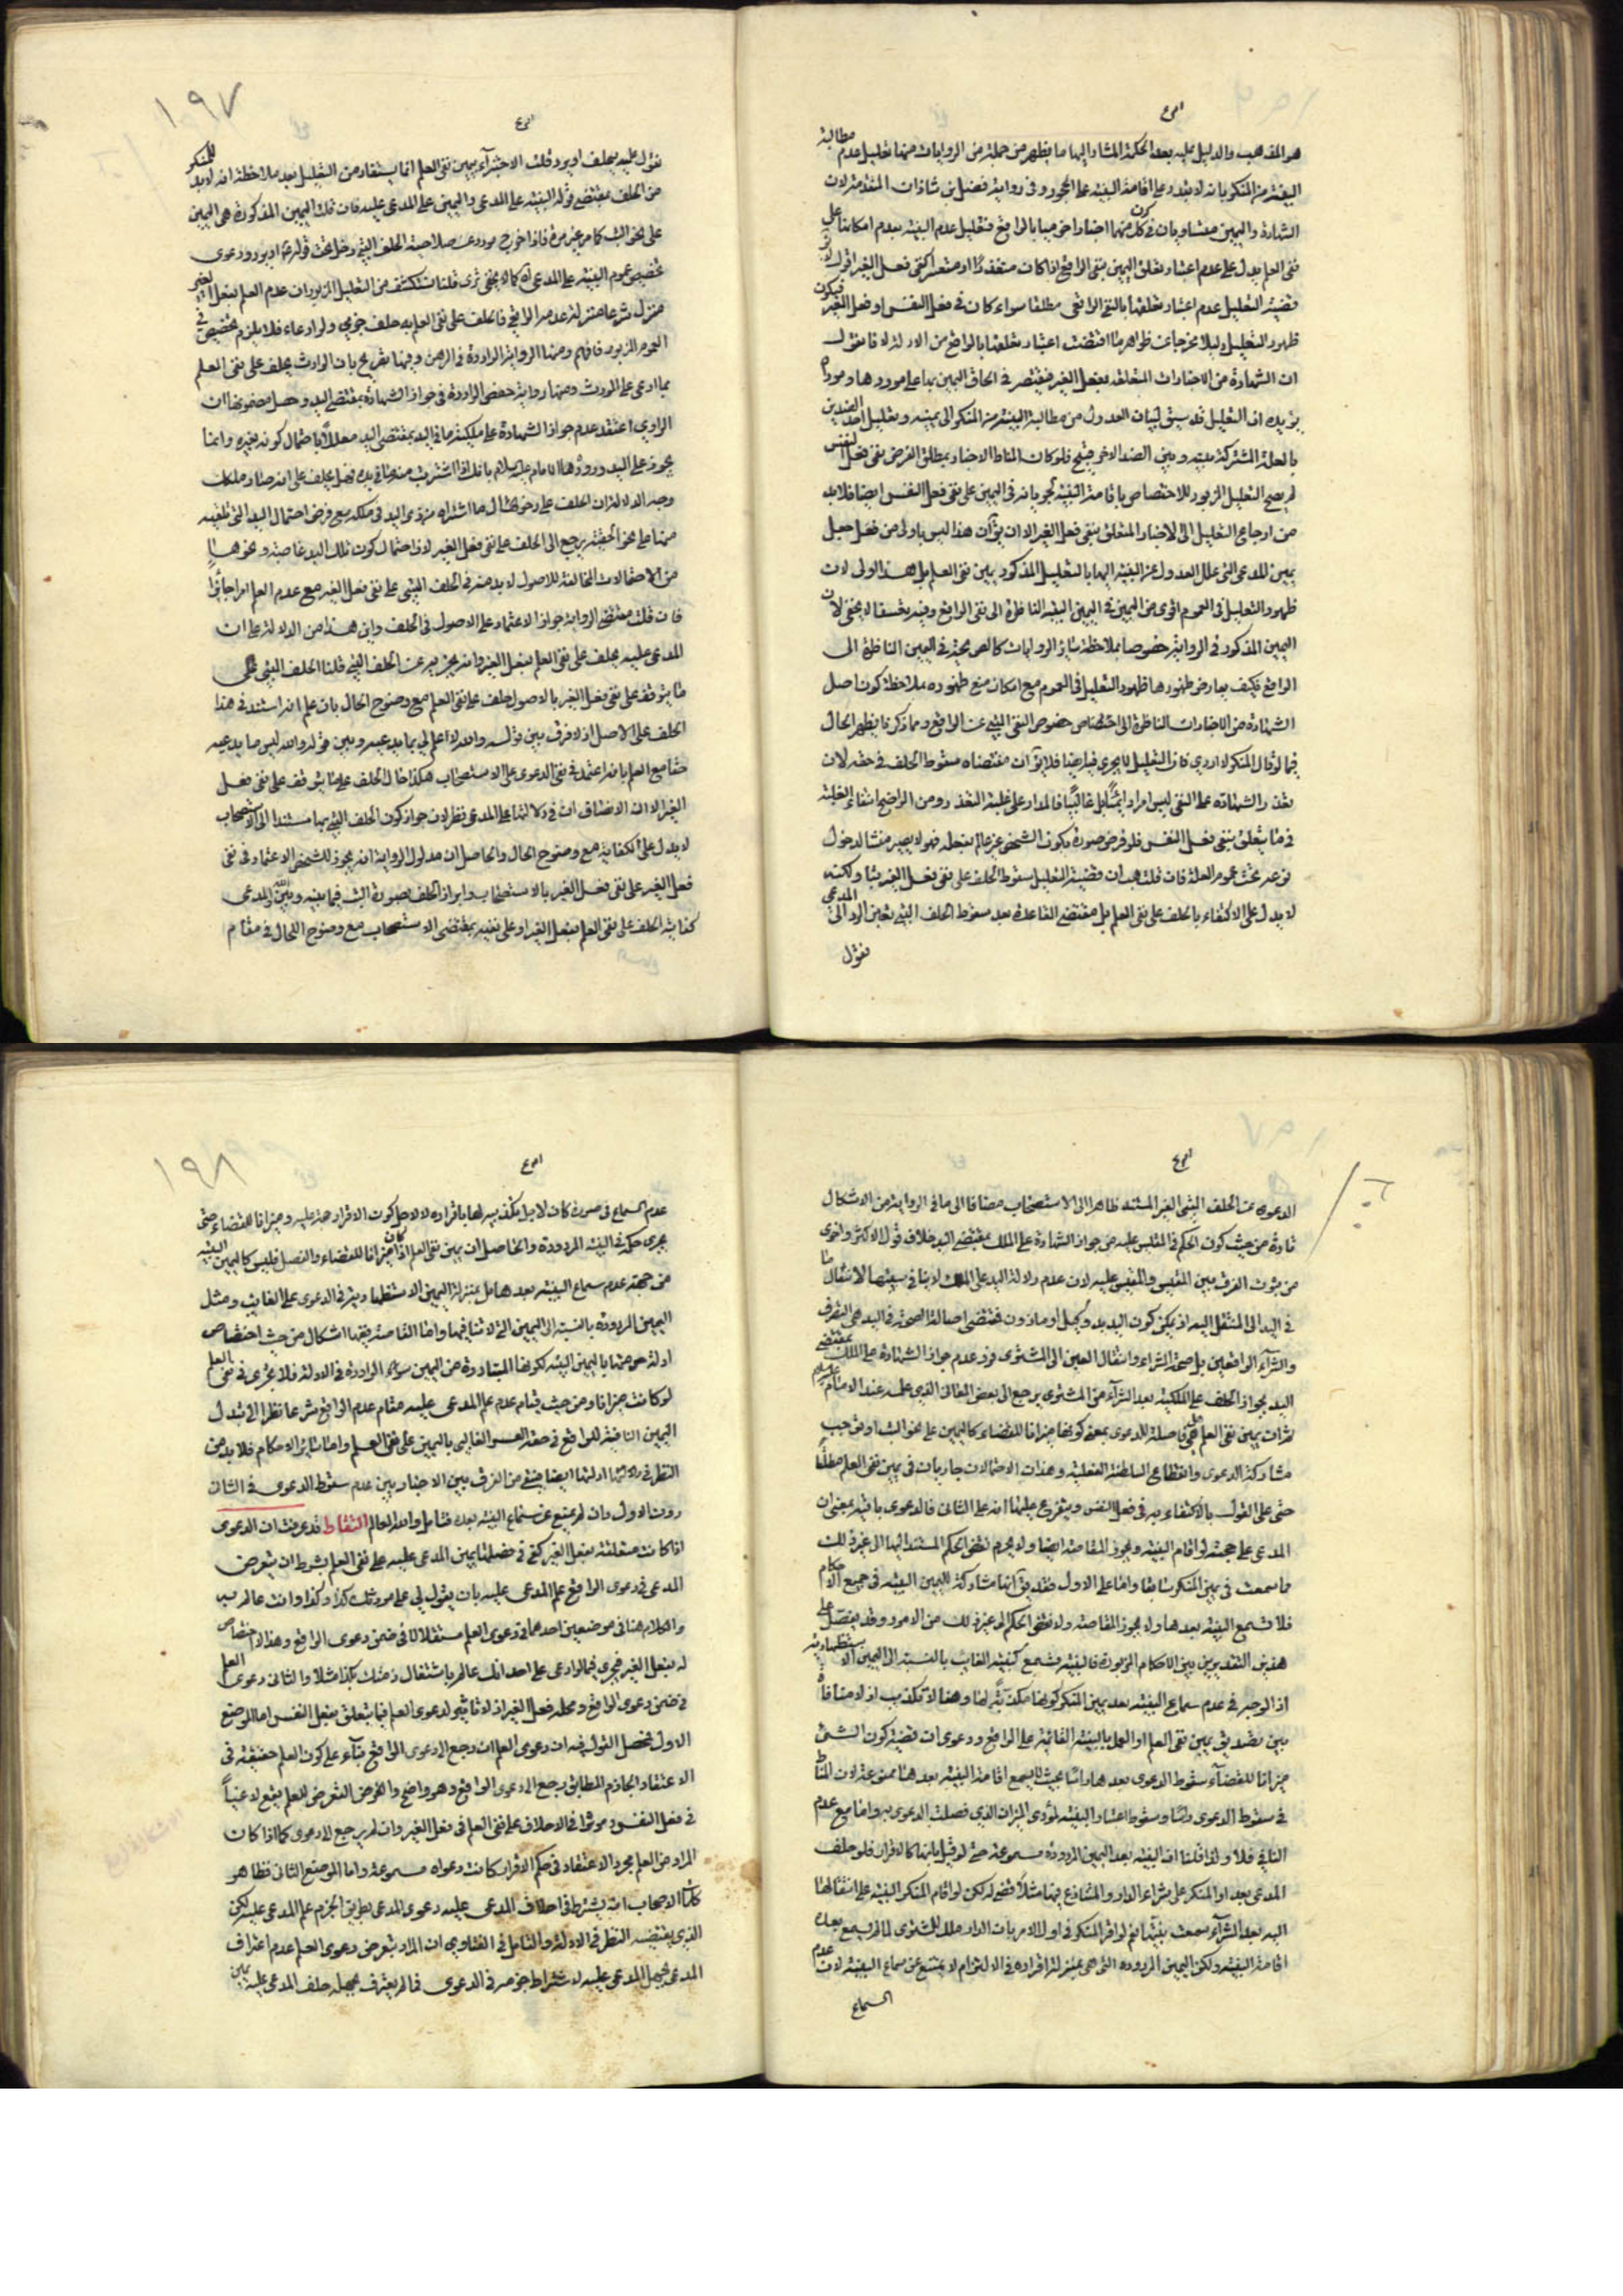 هو المذهب والدليل عليه بعد الحكمة المشار اليها ما يظهر من جملة من الروايات منها تعليل عدم مطالبة
البينة من المنكر بانه لا يقدر على اقامة البينة على الجحود وفى رواية فضل بن شاذان المتقدمة لان
الشهادة واليمين متساويان فى كون كل منهما اخبارا خرميا بالواقع فتعليل عدم البينة بعدم امكانها على
نفى العلم يدل على عدم اعتبار تعلق اليمين بنفى الواقع اذا كان متعذرا او متعسرا كنفى فعل الغير
قضية التعليل عدم اعتبار تعلقها بالنفى الواقعى مطلقا سواء كان فى فعل النفس او فعل الغير فيكون
ظهور التعليل دليلا مخرجا عن ظواهر ما اقتضت اعتبار تعلقها بالواقع من الادلة لانا نقول
ان الشهادة من الاخبارات المتعلقة بفعل الغير فيقتصر فى الحاق اليمين بها على موردها
يؤيده ان التعليل قد سيق لبيان العدول من مطالبة البينة من المنكر الى يمينه وتعليل احد الضدين
بالعلة المشتركة بينه وبين الضد الاخر قبيح فلو كان المناط الاخبار بمطلق الغرض نفى فعل النفس
لم يصح التعليل المزبور للاختصاص باقامة البينة لجريانه فى اليمين على نفى فعل النفس ايضا فلا بد
من ارجاع التعليل الى الاخبار المتعلق بنفى فعل الغير الا ان يق ان هذا ليس باولى من فعل جعل
يمين المدعى التى علل العدول عن البينة اليها بالتعليل المذكور يمين نفى العلم بل هذا اولى لان
ظهور التعليل فى العموم اقوى من اليمين فى اليمين البتية الناظرة الى نفى الواقع وفيه تعسف لا يخفى لان
اليمين المذكور فى الرواية خصوصا بملاحظة سائر الروايات كالصريحة فى اليمين الناظرة الى
الواقع فكيف يعارض ظهورها ظهور التعليل فى العموم مع امكان منع ظهوره بملاحظة كون اصل
الشهادة من الاخبارات الناظرة الى اختصاص خصوص النفى البتى عن الواقع ومما ذكرنا يظهر الحال
فيما لو قال المنكر لا ادرى فان التعليل لا يجرى فيه ايضا فلا يق ان مقتضاه سقوط الحلف فى حقه لان
تعذر الشهادة على النفى ليس امرا دائميا بل غالبيا فالمدار على غلبة التعذر ومن الواضح انتفاء الغلبة
فى ما يتعلق بنفى فعل النفس فلو فرض صورة يكون الشخص غير عالم بفعله فهو لا يصير منشا لدخول
نوعه تحت عموم العلة فان قلت هب ان قضية التعليل سقوط الحلف على نفى فعل الغير بتا ولكنه
لا يدل على الاكتفاء بالحلف على نفى العلم بل مقتضى القاعدة بعد سقوط الحلف البتى تعين الرد الى المدعى
نقول
١٩٧
نقول عليه يحلف او يرد قلت الاجتزاء بيمين نفى العلم انما يستفاد من التعليل بعد ملاحظة انه لا بد للمنكر
من الحلف بمقتضى قوله البينة على المدعى واليمين على المدعى عليه فان تلك اليمين المذكورة هى اليمين
على نحو البت كما مر غير مرة فاذا خرج مورد عن صلاحية الحلف البتى دخل تحت قوله او يرد ودعوى
تخصيص عموم البينة على المدعى كما لا يخفى ترى قلنا نستكشف من التعليل المزبور ان عدم العلم بفعل الغير
منزل شرعا منزلة عدمه الواقعى فالحلف على نفى العلم به حلف جزمى ولو ادعاء فلا يلزم تخصيص فى
العموم المزبور فافهم ومنها الرواية الواردة فى الرهن وفيها تصريح بان الوارث يحلف على نفى العلم
بما ادعى على المورث ومنها رواية حفص الواردة فى جواز الشهادة بمقتضى اليد وحصل مضمونها ان
الراوى اعتقد عدم جواز الشهادة على ملكية ما فى اليد بمقتضى اليد معللا باحتمال كونه لغيره وانما
يجوز على اليد ورده الامام عليه السلام بانك اذا اشتريت منه ما فى يده فهل يحلف على انه صار ملكك
وجه الدلالة ان الحلف على دخول المال ما اشتراه من ذى اليد فى ملكه مع فرض احتمال اليد التى تلقيه
منها على نحو الحقيقة يرجع الى الحلف على نفى فعل الغير لان احتمال كون تلك اليد غاصبة ونحوها
من الاحتمالات المخالفة للاصول لا بد منه فى الحلف البتى على نفى فعل الغير مع عدم العلم امرا جائزا
فان قلت مقتضى الرواية جواز الاعتماد على الاصول فى الحلف واين هذا من الدلالة على ان
المدعى عليه يحلف على نفى العلم بفعل الغير وانه يجزى به عن الحلف البتى قلنا الحلف البتى على
ما يتوقف على نفى فعل الغير بالاصول حلف على نفى العلم مع وضوح الحال بان علم انه استند فى هذا
الحلف على الاصل اذ لا فرق بين قوله والله لا اعلم لى بما يدعيه وبين قوله والله ليس ما يدعيه
حقا مع العلم بانه اعتمد فى نفى الدعوى على الاستصحاب هكذا حال الحلف على ما يتوقف على نفى فعل
الغير الا ان الانصاف ان فى دلالتها على المدعى نظرا لان جواز كون الحلف البتى بها مستندا الى الاستصحاب
لا يدل على الكفاية مع وضوح الحال والحاصل ان مدلول الرواية انه يجوز للشخص الاعتماد فى نفى
فعل الغير على نفى فعل الغير بالاستصحاب وابراز الحلف بصورة البت فيما بينه وبين الله والمدعى
كفاية الحلف على نفى العلم بفعل الغير او على نفيه بمقتضى الاستصحاب مع وضوح الحال فى مقام
الدعوى عن الحلف البتى الغير المستند ظاهرا الى الاستصحاب مضافا الى ما فى الرواية من الاشكال
تارة من حيث كون الحكم فى المقيس عليه من جواز الشهادة على الملك بمقتضى اليد خلاف قول الاكثر واخرى
من ثبوت الفرق بين المقيس والمقيس عليه لان عدم دلالة اليد على الملك لا ينافى سببها لانتقال ما
فى اليد الى المنتقل اليه اذ يمكن كون اليد يد وكيل او ماذون فمقتضى اصالة الصحة فى اليد هى التصرف
والشراء الواقعين بل صحة الشراء وانتقال العين الى المشترى فرد عدم جواز الشهادة على الملك بمقتضى
اليد بجواز الحلف على الملكية بعد الشراء من المشترى يرجع الى بعض المعانى الذى علمه عند الامام عليه السلام
ثم ان يمين نفى العلم هل هى فاصلة للدعوى بمعنى كونها ميزانا للقضاء كاليمين على نحو البت او توجب
متاركة الدعوى وانقطاع السلطنة الفعلية وهذان الاحتمالان جاريان فى يمين نفى العلم مطلقا
حتى على القول بالاكتفاء به فى فعل النفس ويتفرع عليهما انه على الثانى فالدعوى باقية بمعنى ان
المدعى على حجته لو اقام البينة ويجوز المقاصة ايضا ولا يحرم نقض الحكم المستند اليها الى غير ذلك
مما سمعت فى يمين المنكر سابقا واما على الاول فقد يق انها مشاركة لليمين البتية فى جميع الاحكام
فلا تسمع البينة بعدها ولا يجوز المقاصة ولا نقض الحكم الى غير ذلك من الامور وقد يفصل على
هذين التقديرين بين الاحكام المزبورة فالبينة تسمع كبينة الغائب بالنسبة الى اليمين الاستظهارية
اذ الوجه فى عدم سماع البينة بعد يمين المنكر كونها مكذبة لها وهنا لا تكذيب اذ لا منافاة
بين تصديق يمين نفى العلم او العمل بالبينة القائمة على الواقع ودعوى ان قضية كون الشئ
ميزانا للقضاء سقوط الدعوى بعدها راسا بحيث لا يسمع اقامة البينة بعد هنا ممنوعة لان المناط
فى سقوط الدعوى راسا وسقوط اعتبار البينة لمؤدى الميزان الذى فصلت الدعوى به واما مع عدم
التنافى فلا ولذا قلنا ان البينة بعد اليمين المردودة مسموعة حتى لو قيل بانها كالاقرار فلو حلف
المدعى بعد رد المنكر على شراء الدار والمتنازع فيها مثلا فقضى له لكن لو اقام المنكر البينة على انتقالها
اليه بعد الشراء سمعت بينته نعم لو اقر المنكر فى اول الامر بان الدار ملك للمشترى لم يسمع بعده
اقامة البينة ولكن اليمين المردودة التى هى بمنزلة اقراره فى الالتزام لا يمتنع عن سماع البينة لان عدم
السماع
١٩٨
عدم السماع فى صورة كان لاجل تكذيبه لها باقراره لا لاجل كون الاقرار حجة عليه وميزانا للقضاء حتى
يجرى حكمه فى البينة المردودة والحاصل ان يمين نفى العلم اذا كان ميزانا للقضاء والفصل فليس كاليمين البتية
من جهة عدم سماع البينة بعدها بل بمنزلة اليمين الاستظهارية فى الدعوى على الغايب ومثل
اليمين المردودة بالنسبة الى اليمين التى لا تنافيها واما المقاصة ففيها اشكال من حيث اختصاص
ادلة حرمتها باليمين البتية لكونها المتبادرة من اليمين سواء الواردة فى الادلة فلا يجرى فى نفى العلم
لو كانت ميزانا ومن حيث قيام عدم علم المدعى عليه مقام عدم الواقع شرعا نظرا الى تبدل
اليمين النافية للواقع فى حقه العسر الغالبى باليمين على نفى العلم واما سائر الاحكام فلا بد من
النظر فى ادلتها ايضا فينبغى من الفرق بين الاخبار بين عدم سقوط الدعوى فى الثانى
دون الاول وان لم يمنع عن سماع البينة بعده فتامل والله العالم التقاط قد عرفت ان الدعوى
اذا كانت متعلقة بفعل الغير كفى فى فصلها يمين المدعى عليه على نفى العلم بشرط ان يتعرض
المدعى فى دعوى الواقع علم المدعى عليه بان يقول لى على مورثك كذا وكذا وانت عالم به
والكلام هنا فى موضعين احدهما فى دعوى العلم مستقلا لا فى ضمن دعوى الواقع وهذا لا اختصاص
له بفعل الغير فيجرى فيما لو ادعى على احد انك عالم باشتغال ذمتك بكذا مثلا والثانى دعوى العلم
فى ضمن دعوى الواقع ومحله فعل الغير اذ لا تاثير لدعوى العلم فيما يتعلق بفعل النفس اما الموضع
الاول فمحصل القول فيه ان دعوى العلم ان رجع الى دعوى الواقع بناء على كون العلم حقيقة فى
الاعتقاد الجازم المطابق يرجع الى دعوى الواقع وهو واضح والغرض التعرض للعلم يقع لاغيا
فى فعل النفس وموثرا فى الاحلاف على نفى العلم فى فعل الغير وان لم يرجع لا دعوى كما اذا كان
المراد من العلم مجرد الاعتقاد فى حكم الاقرار كانت دعواه مسموعة واما الموضع الثانى فظاهر
كلمات الاصحاب انه يشترط فى احلاف المدعى عليه دعوى المدعى بطريق الجزم علم المدعى عليه لكن
الذى يقتضيه النظر فى الادلة والتامل فى الفتاوى ان المراد بتعرض دعوى العلم عدم اعتراف
المدعى بجهل المدعى عليه لا اشتراط جزمه فى الدعوى فما لم يعترف بجهله حلف المدعى عليه يمين